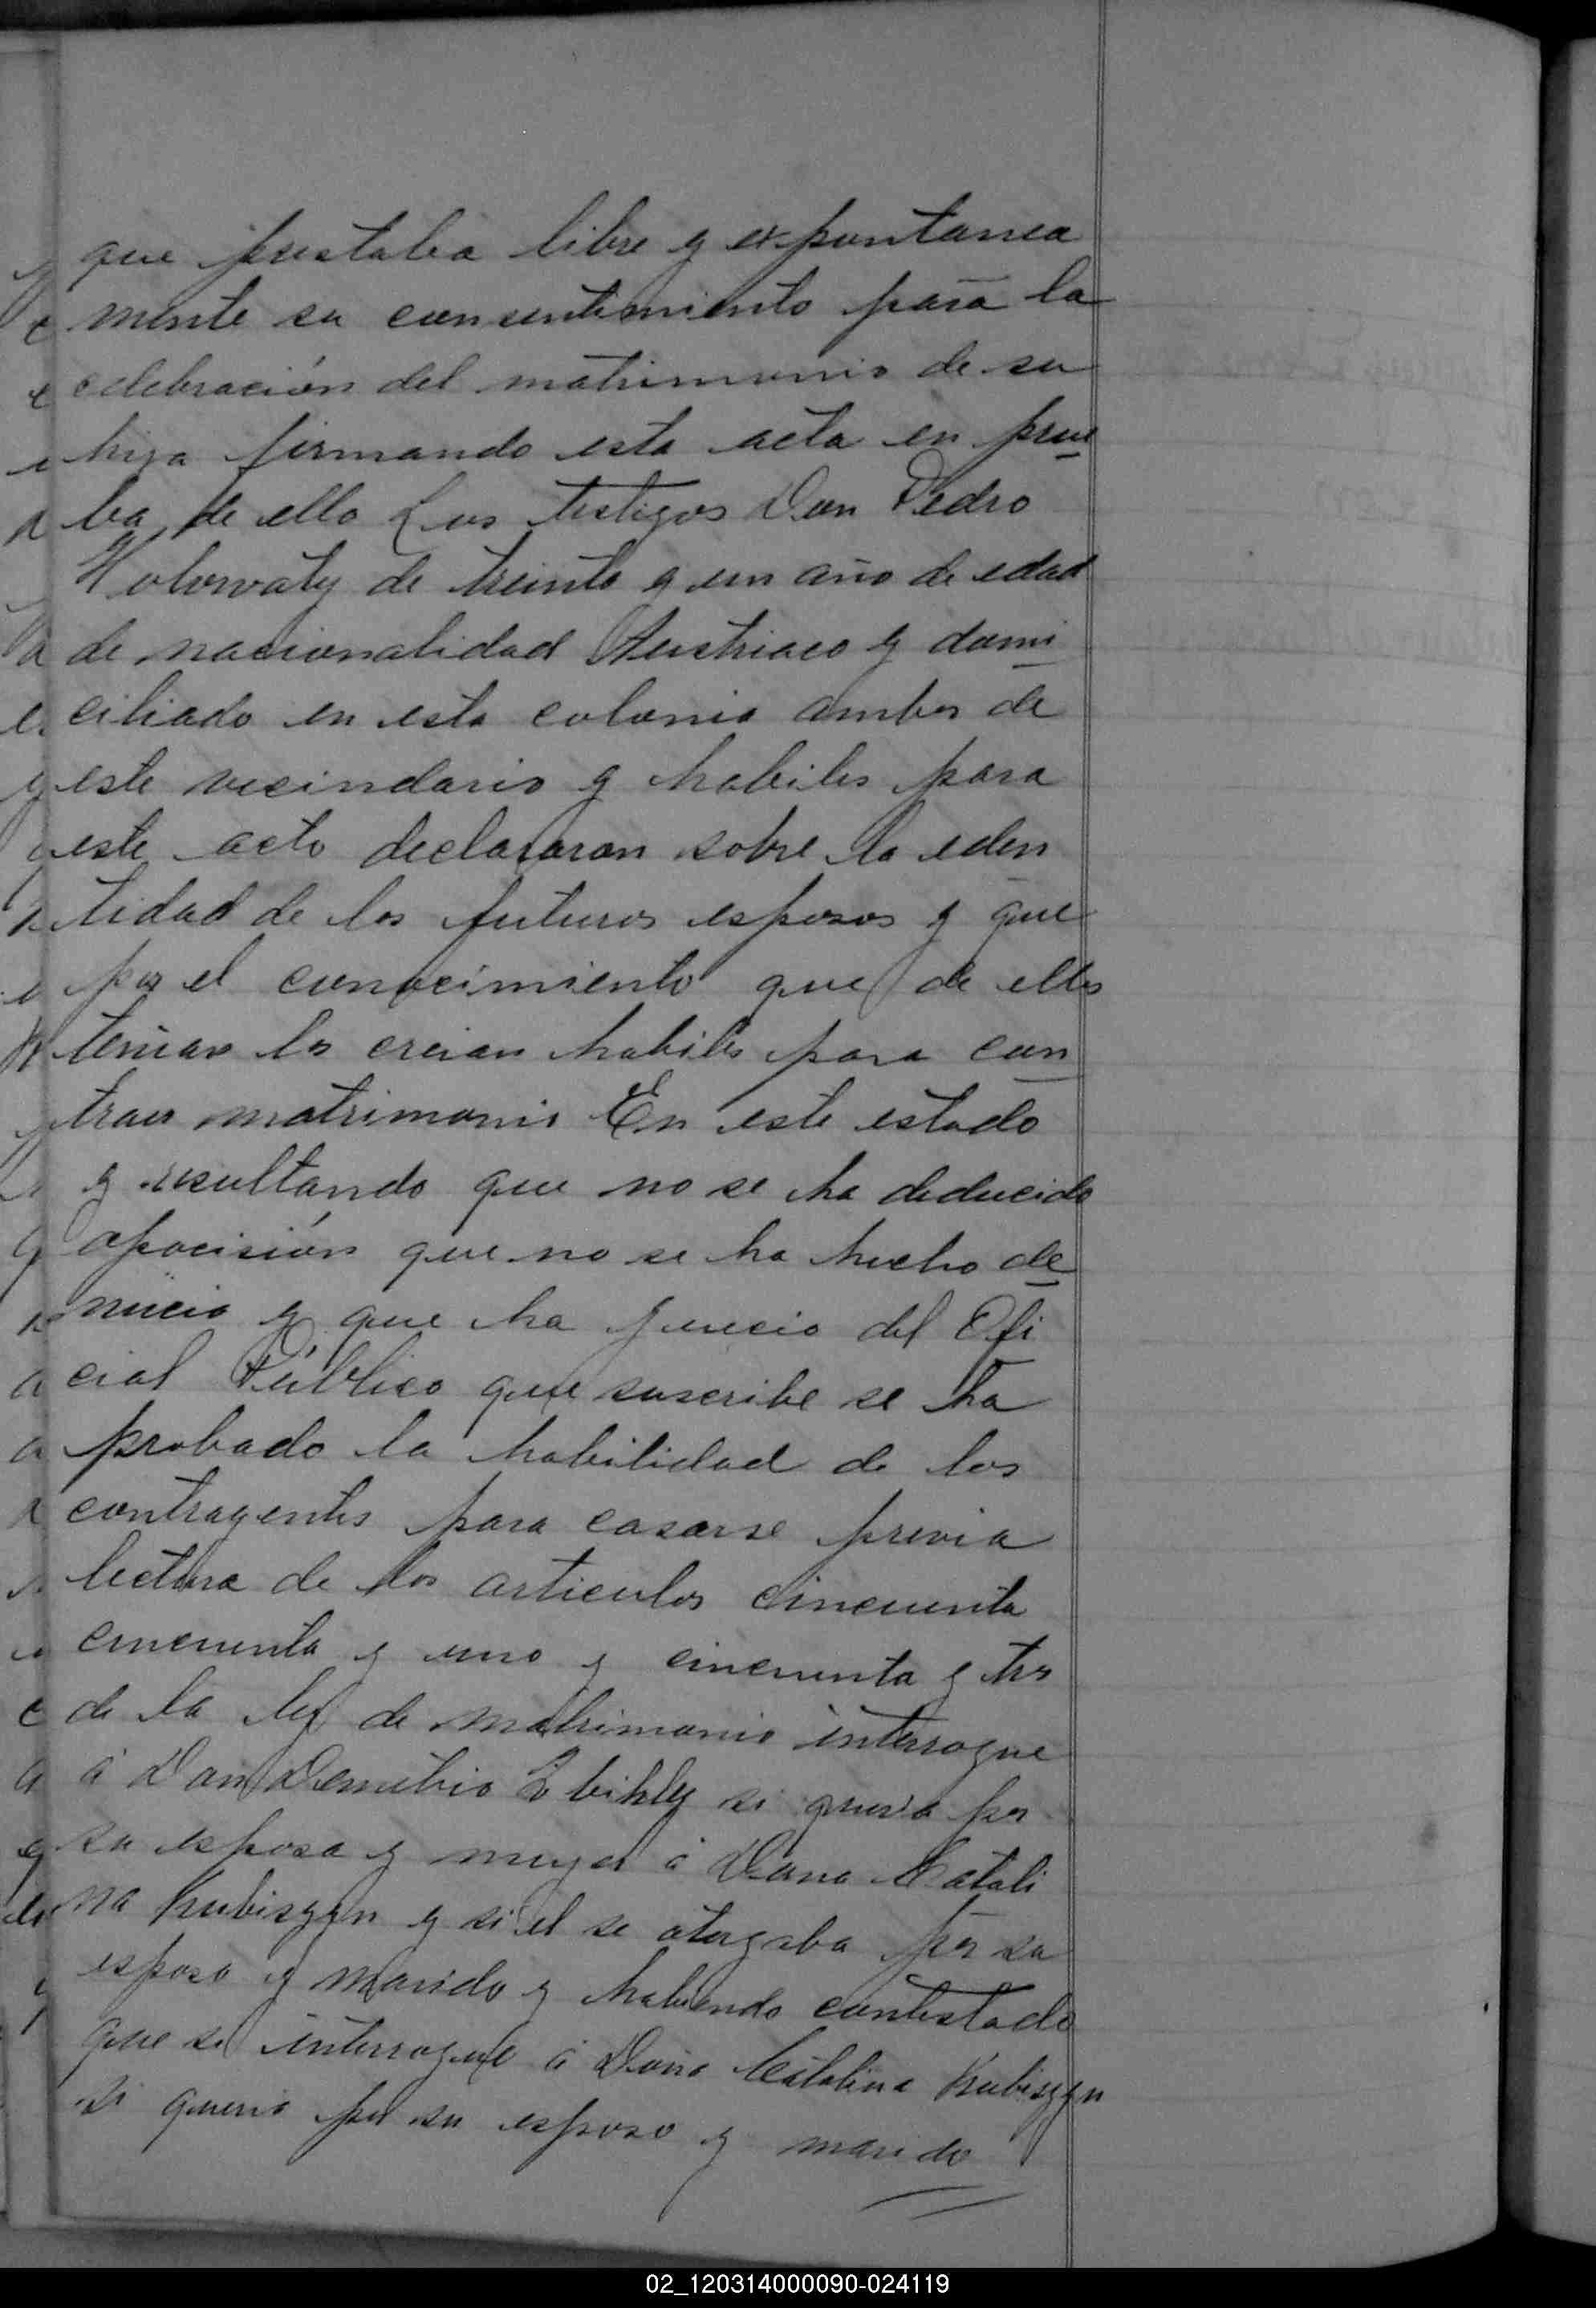 que prestaba libre y expontanea
mente su consentimiento para la
celebración del matrimonio de su
hija firmando esta acta en prue
ba de ello Los testigos Don Pedro
Holowaty de treinta y un año de edad
de nacionalidad Austriaco y domi
ciliado en esta colonia ambos de
este vecindario y habiles para
este acto declararon sobre la eden
tidad de los futuros esposos y que
por el conocimiento que de ellos
tenian los creian habiles para con
traer matrimonio En este estado
y resultando que no se ha deducido
opocisión que no se ha hecho de
nuncia y que ha juicio del Ofi
cial Público que suscribe se ha
probado la habilidad de los
contrayentes para casarse previa
lectura de los articulos cincuenta
cincuenta y uno y cincuenta y tres
de la ley de matrimonio interrogue
á Don Demetrio si queria por
su esposa y muger á Dona Catali
na Kubiszyn y si el se otorgaba por su
esposo y marido y habiendo contestado
que si interrogue á Doña Catalina Kubiszyn
si queria por su esposo y marido
02_120314000090-024119